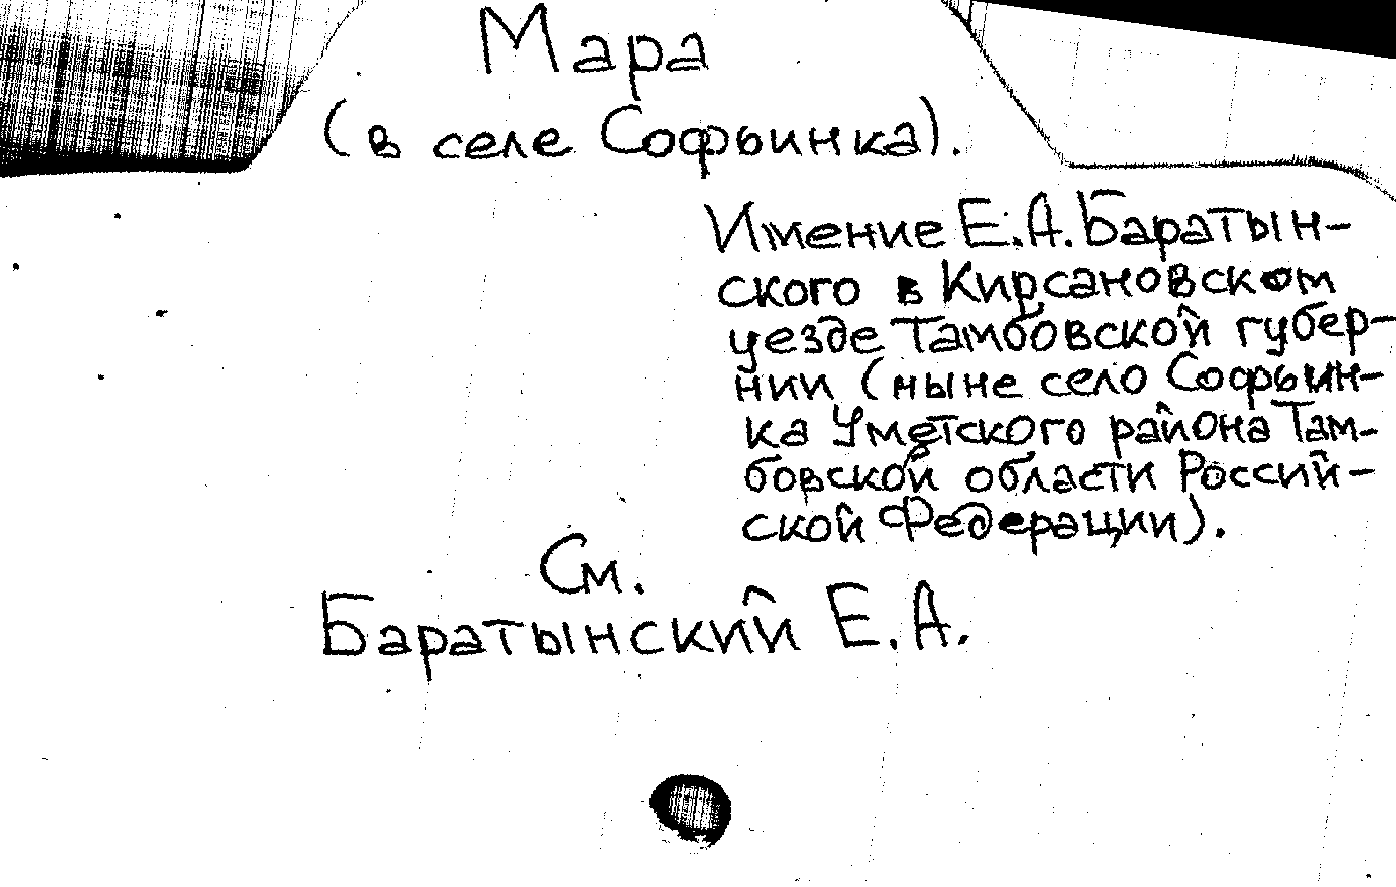 Мара
(в селе Софьинка).
Имение Е.А. Баратын-
ского в Кирсановском
уезде Тамбовской губер-
нии (ныне село Софьин-
ка Умётского района Там-
бовской области Россий-
ской Федерации).
См.
Баратынский Е.А.